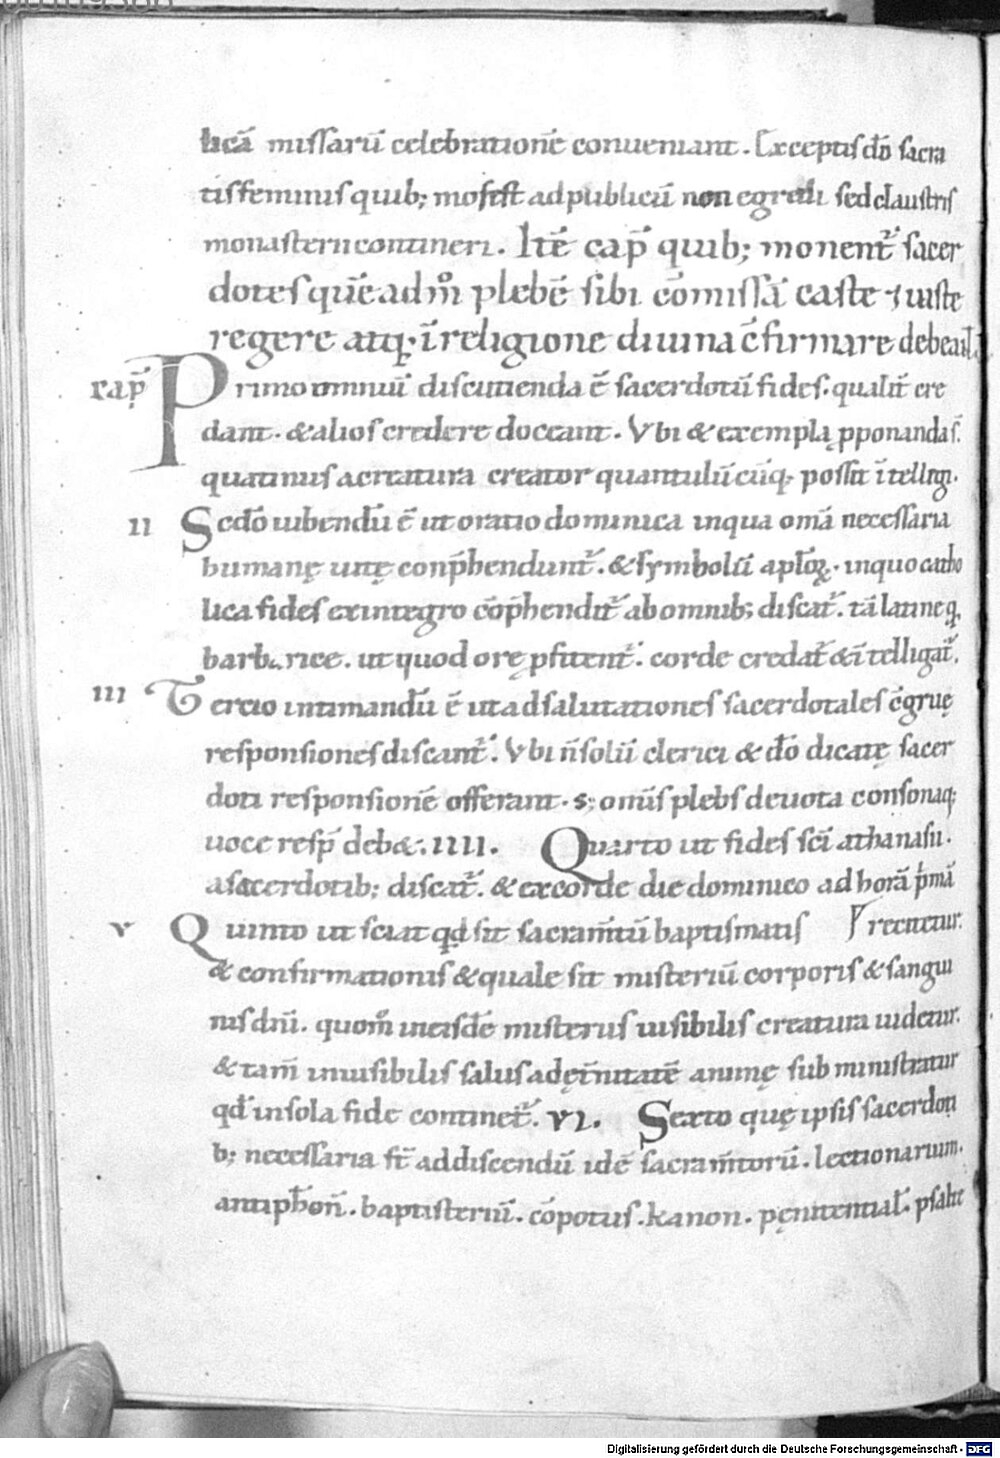 licā missarū celebrationē conueniant. Exceptis dō sacra
tis feminis quib; mos ē st ad publicū non egredi sed claustris
monasterii contineri. Itē cap̄ quib; monent᷑ sacer
dotes quē admͦ plebē sibi cōmissā caste ⁊ iuste
regere atq; ī religione diuina cfirmare debeant.
cap̄ Primo omniū discutienda ē sacerdotū fides. qualit̄ cre
dant. & alios credere doceant. Vbi & exempla pponanda s̄.
quatinus a creatura creator quantulūcūq; possit ītellegi.
II Scdō iubendū ē ut oratio dominica in qua omā necessaria
humanę uitę conp̄hendunt᷑. & symbolū aplōꝝ. in quo catho
lica fides ex integro cōp̄hendit᷑ ab omnib; discat᷑. tā latine q̨
barbarice. ut quod ore ꝓfitent᷑. corde credat᷑ & ītelligat᷑.
III Tercio intimandū ē ut ad salutationes sacerdotales cgruę
responsiones discant᷑. Vbi n̄ solū clerici & dō dicatę sacer
doti responsionē offerant. s; omis plebs deuota consonaq;
uoce resp̄ deb&. IIII. Quarto ut fides scī athanasii.
a sacerdotib; discat᷑. & ex corde die dominico ad horā pmā
V Quinto ut sciat qd sit sacramtū baptismatis recitetur.
& confirmationis & quale sit misteriū corporis & sangui
nis dnī. quom̄ in eisdē misteriis uisibilis creatura uidetur.
& tam̄ inuisibilis salus ad ęt̄nitatē animę subministratur
qd in sola fide continet᷑. VI. Sexto quę ipsis sacerdoti
b; necessaria s̄t ad discendū idē sacramtorū. lectionarium.
antiphon̄. baptisteriū. cōpotus. kanon. pęnitential̄. psalte
Digitalisierung gefördert durch die Deutsche Forschungsgemeinschaft - DFG